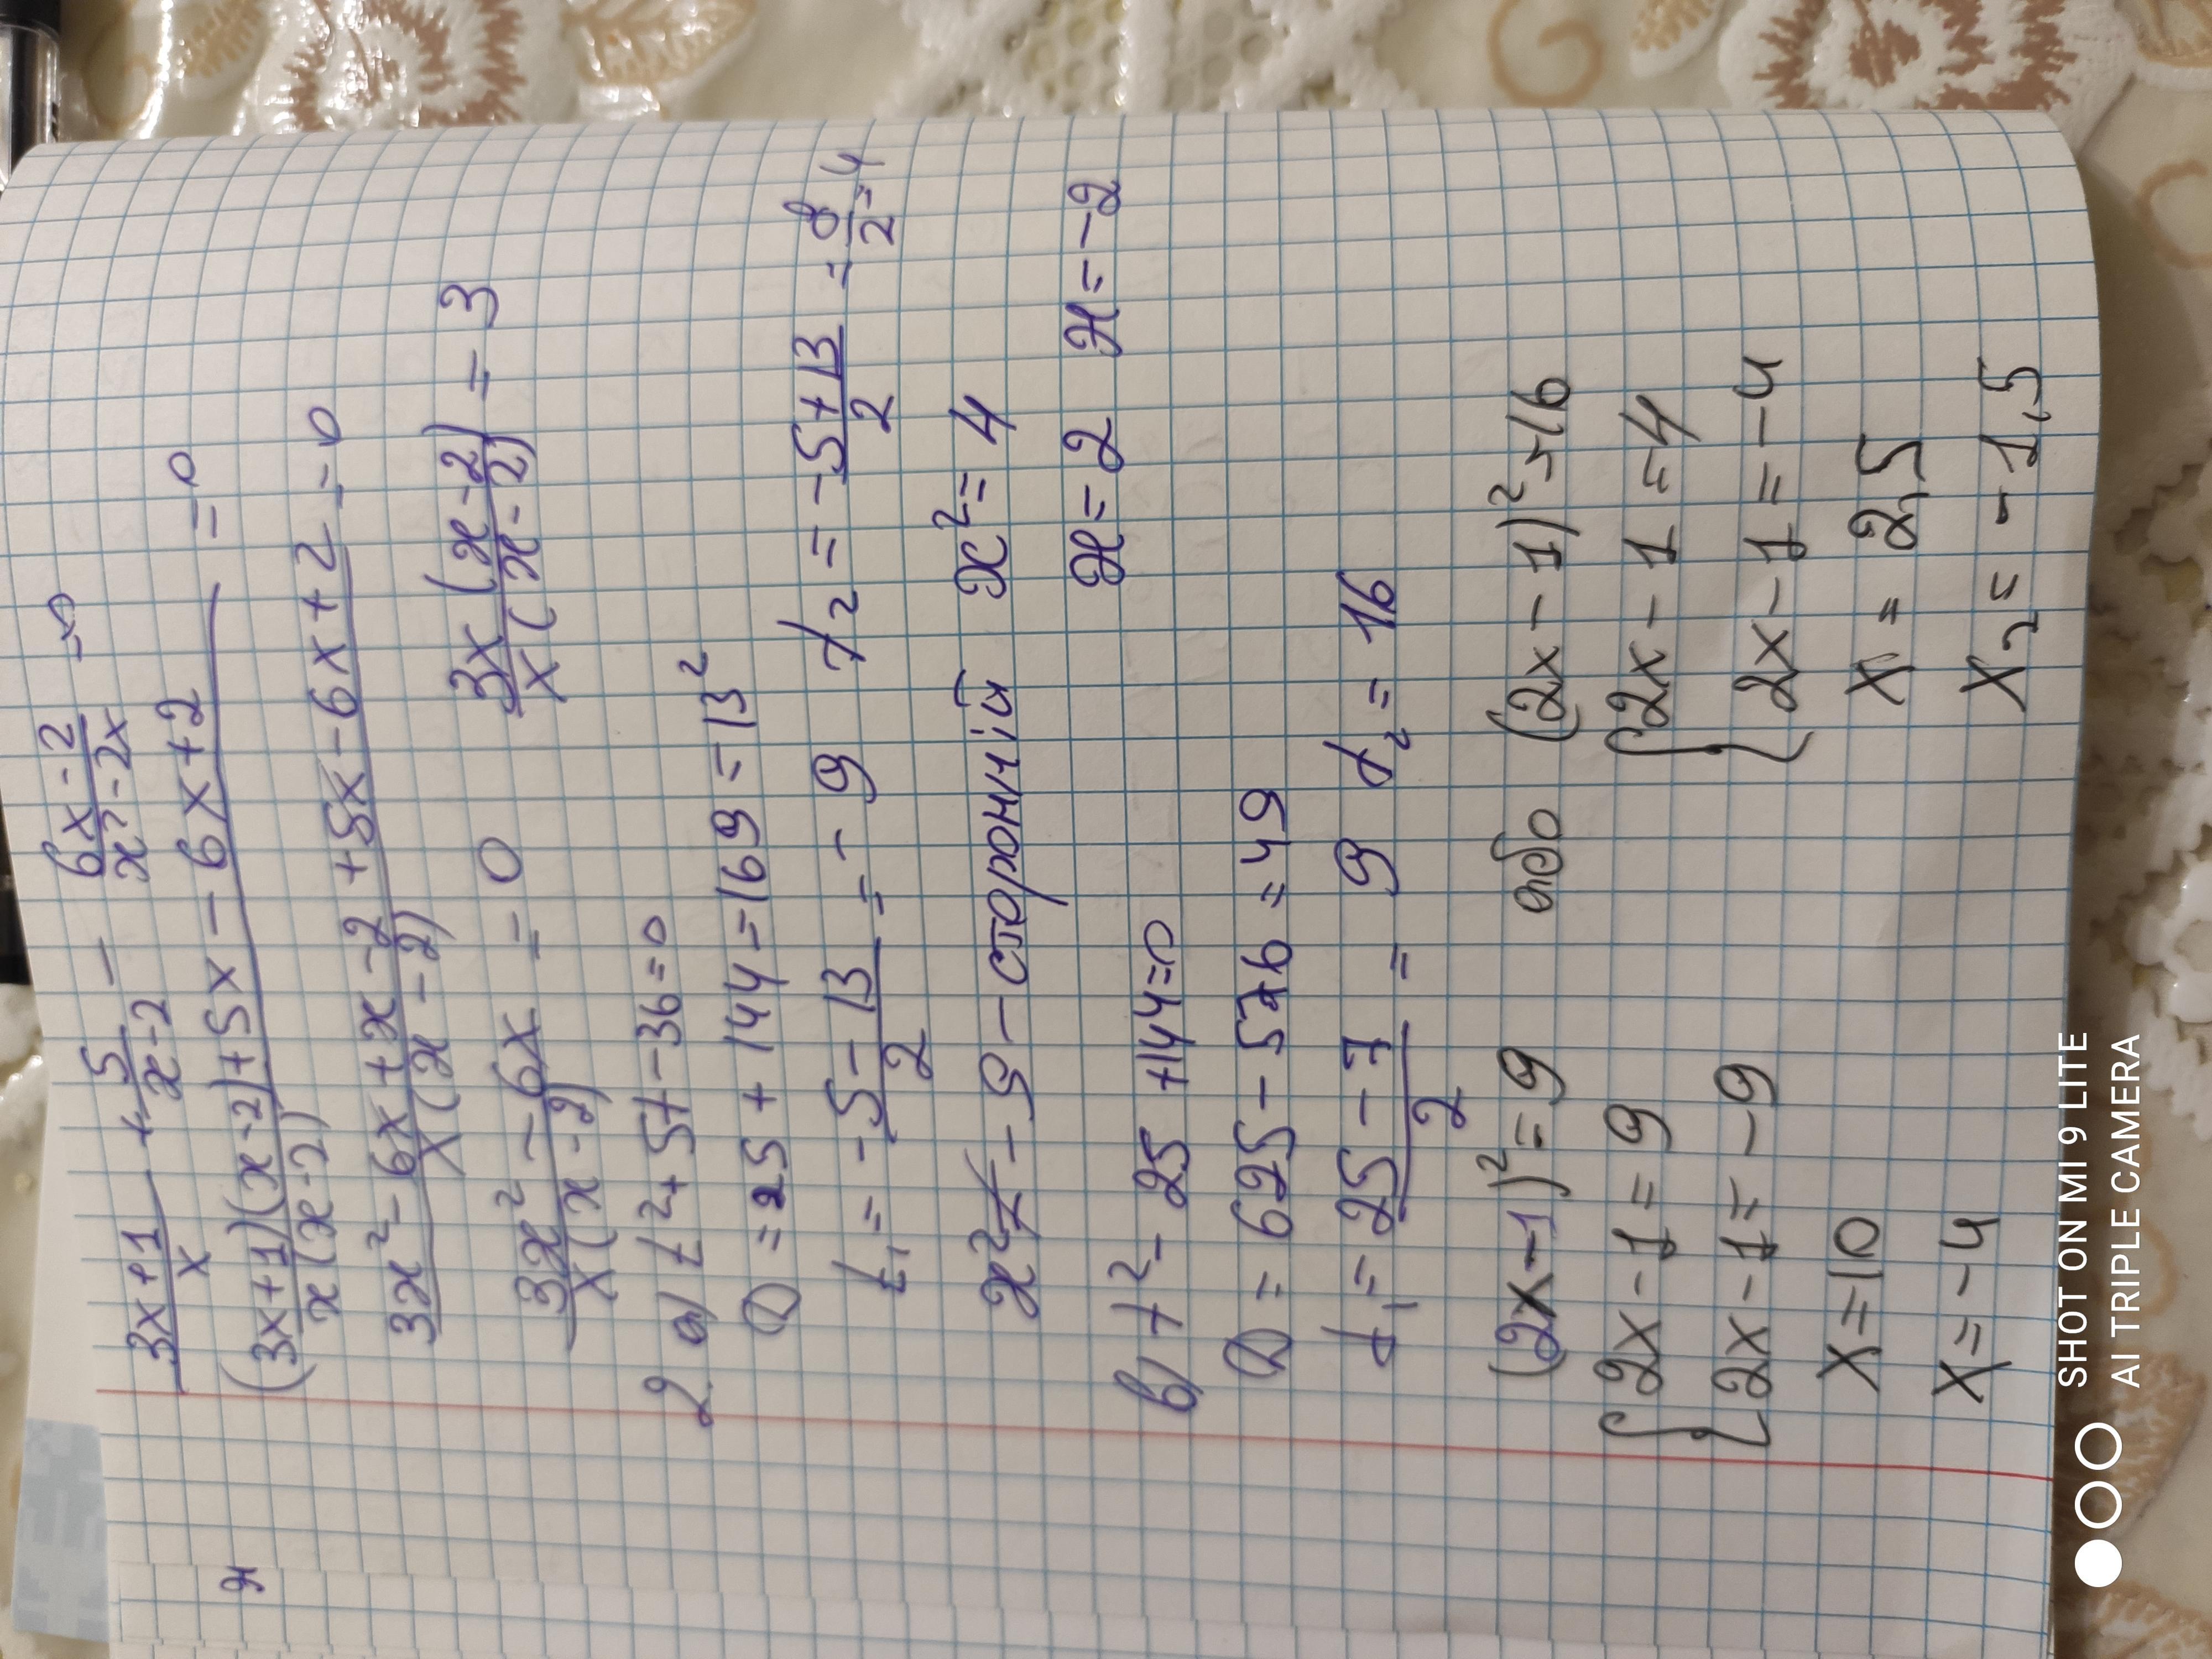 (3x+1)/x + 5/(x-2) - (6x-2)/(x²-2x) = 0
((3x+1)(x-2)+5x-6x+2)/(x(x-2)) = 0
(3x²-6x+x-2+5x-6x+2)/(x(x-2)) = 0
(3x²-6x)/(x(x-2)) = 0 3x(x-2)/(x(x-2)) = 3
2. а) t²+5t-36=0
D = 25 + 144 = 169 = 13²
t₁ = (-5-13)/2 = -9 t₂ = (-5+13)/2 = 8/2 = 4
x² - 9 - сторонній x² = 4
x = 2 x = -2
в) t² - 25 + 144 = 0
D = 625 - 576 = 49
t₁ = (25-7)/2 = 9 t₂ = 16
(2x-1)² = 9 або (2x-1)² = 16
{2x-1=9 {2x-1=4
2x-1=-9 2x-1=-4
x=10 x₁=2,5
x=-4 x₂=-1,5
SHOT ON MI 9 LITE
AI TRIPLE CAMERA